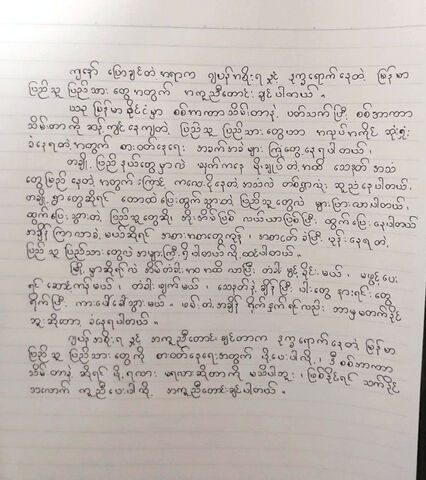 ကျနော် ပြောချင်တဲ့ စာရာက ဂျပန်အစိုးရ နှင့် ဒုက္ခရောက်နေတဲ့ မြန်မာ
ပြည်သူ ပြည်သားတွေအတွက် အကူညီတောင်းချင်ပါတယ်။
ယခု မြန်မာနိုင်ငံမှာ စစ်အာဏာသိမ်းတာနဲ့ ပတ်သက်ပြီး စစ်အာဏာ
သိမ်းတာကို ဆန့်ကျင်နေကျတဲ့ ပြည်သူ ပြည်သားတွေဟာ အလုပ်အကိုင် ဆုံးရှုံး
ခံနေရတဲ့အတွက် စားဝတ်နေရေး အခက်အခဲများ ကြုံတွေ့နေရပါတယ်၊
တချို့ ပြည်နယ်တွေမှာလဲ မနက်ကနေ မိုးချုပ်တဲ့အထိ သေနတ် အသံ
တွေမြည်နေတဲ့အတွက်ကြောင့် ကလေးငိုနေတဲ့အသံလဲ တစ်ရွာလုံး ဆူညံနေပါတယ်၊
တချို့ရွာတွေဆိုရင် တောထဲပြေးထွက်သွားတဲ့ ပြည်သူတွေလဲ များပြားလာပါတယ်၊
ထွက်ပြေးသွားတဲ့ ပြည်သူတွေဆို အိုးအိမ်မြေ လယ်ယာမြေစွန့်ပြီး ထွက်ပြေးနေပါတယ်
အချိန်ကြာလာခဲ့မယ်ဆိုရင် အစားအစာတွေကုန်၊ အစာငတ်ခံပြီး ပုန်းနေရတဲ့
ပြည်သူပြည်သားတွေလဲ အများကြီးရှိပါတယ်လို့ ထင်ပါတယ်။
မြို့မှာဆိုရင်လဲ အိမ်တံခါးဝအထိ လာပြီး တံခါးဖွင့်ခိုင်းမယ်၊ မဖွင့်ပေး
ရင် ဆောင့်ကန်မယ်၊ တံခါးဖျက်မယ်၊ သေနတ်နဲ့ချိန်ပြီး ပါးတွေ နားရင်းတွေ
ရိုက်ပြီး ကားပေါ်ခေါ်သွားမယ်။ ဖမ်းတဲ့အချိန် ရိုက်နှက်ရင်လည်း ဘာမှမတတ်နိုင်
ဘူးဆိုတာ ခံနေရပါတယ်။
ဂျပန်အစိုးရ နှင့် အကူညီတောင်းချင်တာက ဒုက္ခရောက်နေတဲ့ မြန်မာ
ပြည်သူ ပြည်သားတွေကို စားဝတ်နေရေးအတွက် ပို့ပေးပါလို့၊ ဒီ စစ်အာဏာ
သိမ်းတာနဲ့ ဆိုရင် ရို့ရလား မရလားဆိုတာကို မသိပါဘူး၊ ဖြစ်နိုင်ရင် သက်ဝိုင်
အလောက် ကူညီပေးပါလို့ အကူညီတောင်းချင်ပါတယ်။